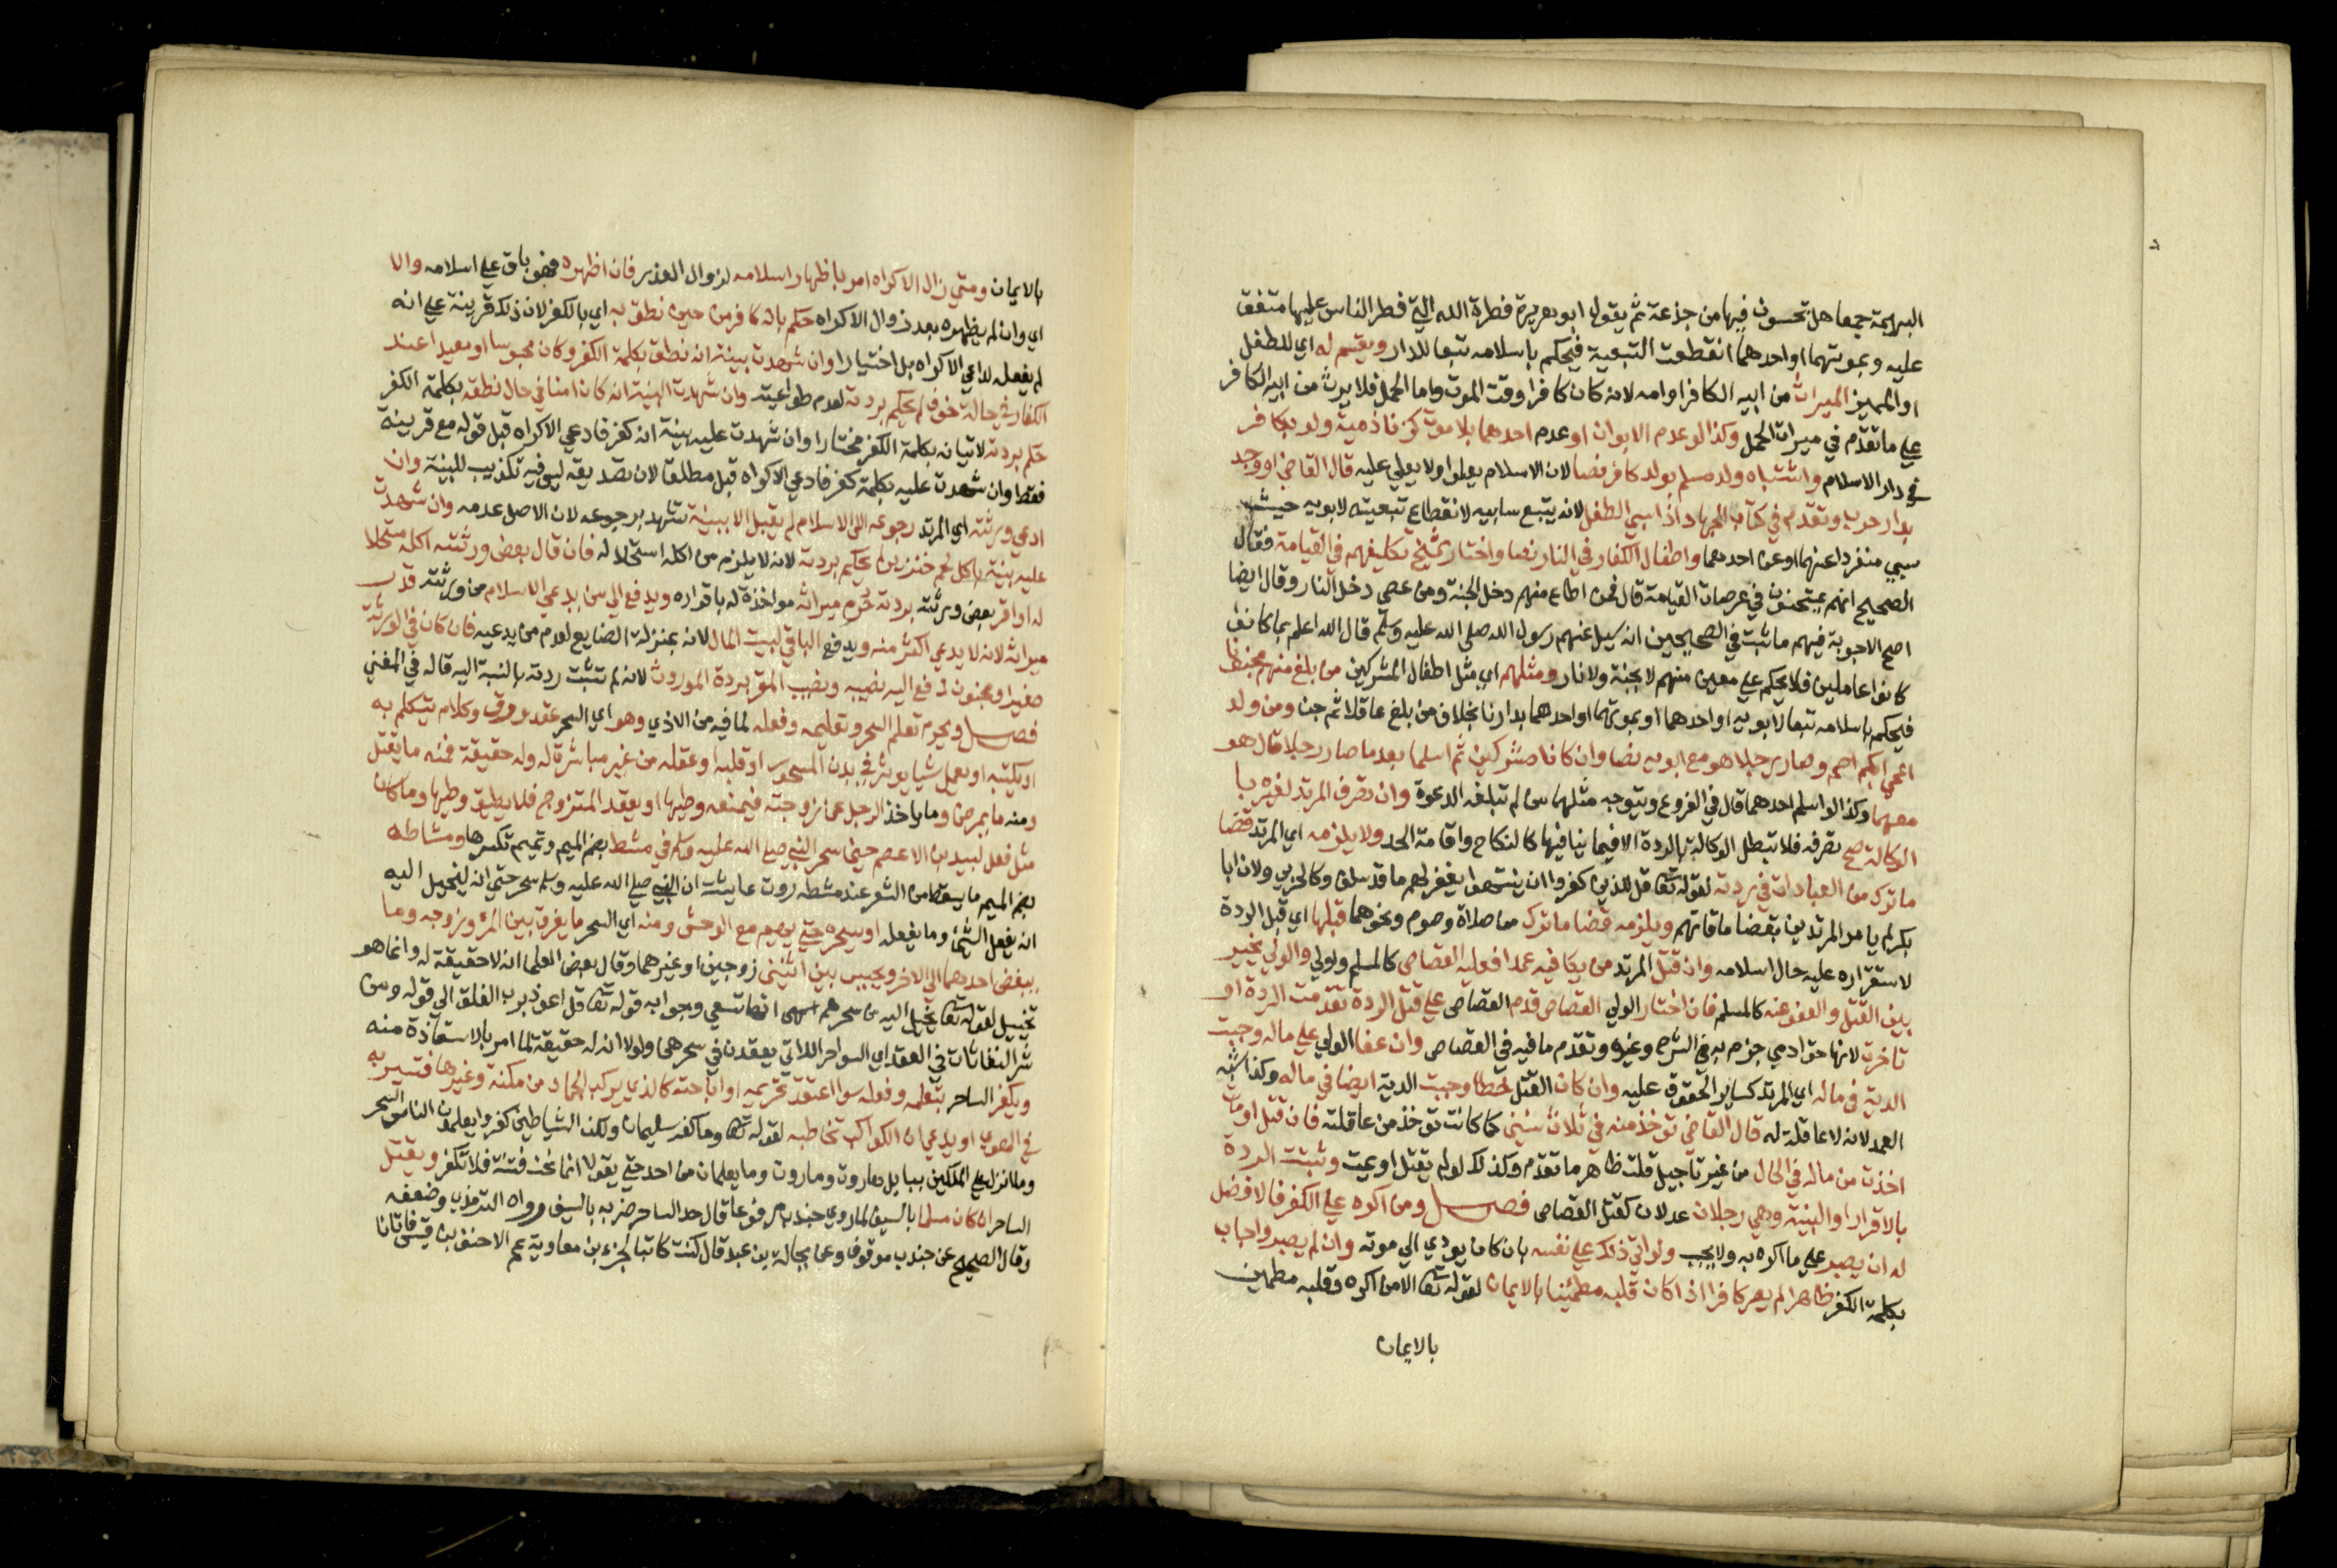 البهيمة جمعا هل تحسون فيها من جذعة ثم يقول ابو هريرة فطرة الله التي فطر الناس عليها متفق
عليه وبموتهما او احدهما انقطعت التبعية فيحكم باسلامه تبعا للدار ويقسم له اي للطفل
او المميز الميراث من ابيه الكافر او امه لانه كان كافرا وقت الموت واما الحمل فلا يرث من ابيه الكافر
علي ما تقدم في ميراث الحمل وكذا لو عدم الابوان او عدم احدهما بلا موت كزنا ذمية ولو بكافر
في دار الاسلام واشتباه ولد مسلم بولد كافر نصا لان الاسلام يعلوا ولا يعلي عليه قال القاضي او وجد
بدار حرب وتقدم في كتاب الجهاد اذا سبي الطفل لانه يتبع سابيه لانقطاع تبعيته لابويه حيث
سبي منفردا عنهما او عن احدهما واطفال الكفار في النار نصا واختار الشيخ تكليفهم في القيامة فقال
الصحيح انهم يمتحنون في عرصات القيامة قال فمن اطاع منهم دخل الجنة ومن عصي دخل النار وقال ايضا
اصح الاجوبة فيهم ما ثبت في الصحيحين انه سيل عنهم رسول الله صلي الله عليه وسلم قال الله اعلم بما كانوا
كانوا عاملين فلا يحكم علي معين منهم لا بجنة ولا نار ومثلهم اي مثل اطفال المشركين من بلغ منهم مجنونا
فيحكم باسلامه تبعا لابويه او احدهما او بموتهما او احدهما بدارنا بخلاف من بلغ عاقلا ثم جن ومن ولد
اعمي ابكم اصم وصار رجلا هو مع ابويه نصا وان كانا مشركين ثم اسلما بعد ما صار رجلا قال هو
معهما وكذا لو اسلم احدهما قال في الفروع ويتوجه مثلهما من لم تبلغه الدعوة وان تصرف المرتد لغيره با
الوكالة صح تصرفه فلا تبطل الوكالة بالردة الا فيما ينافيها كالنكاح واقامة الحد ولا يلزمه اي المرتد قضا
ما ترك من العبادات في ردته لقوله تعا قل للذين كفروا ان ينتهوا يغفر لهم ما قد سلف وكالحربي ولان ابا
بكر لم يامر المرتدين بقضا ما فاتهم ويلزمه قضا ما ترك من صلاة وصوم ونحوهما قبلها اي قبل الردة
لاستقراره عليه حال اسلامه وان قتل المرتد من يكافيه عمدا فعليه القصاص كالمسلم واولي والولي يخير
بين القتل والعفو عنه كالمسلم فان اختار الولي القصاص قدم القصاص علي قتل الردة تقدمت الردة او
تاخرت لانها حق ادمي جزم به في الشرح وغيره وتقدم ما فيه في القصاص وان عفا الولي علي مال وجبت
الدية في ماله اي المرتد كساير الحقوق عليه وان كان القتل خطا وجبت الدية ايضا في ماله وكذا شبه
العمد لانه لا عاقلة له قال القاضي توخذ منه في ثلاث سنين كما كانت توخذ من عاقلته فان قتل او مات
اخذت من ماله في الحال من غير تاجيل قلت ظاهر ما تقدم وكذلك لو لم يقتل او يمت وتثبت الردة
بالاقرار او البينة وهي رجلان عدلان كقتل القصاص فصل ومن اكره علي الكفر فالافضل
له ان يصبر علي ما اكره به ولا يجيب ولو اتي ذلك علي نفسه بان كان يودي الي موته وان لم يصبر واجاب
بكلمة الكفر ظاهرا لم يصر كافرا اذا كان قلبه مطمئنا بالايمان لقوله تعا الا من اكره وقلبه مطمين
بالايمان
بالايمان ومتي زال الاكراه امر باظهار اسلامه لزوال العذر فان اظهره فهو باق علي اسلامه والا
اي وان لم يظهره بعد زوال الاكراه حكم بانه كافر من حين نطق به اي بالكفر لان ذلك قرينة علي انه
لم يفعله لداعي الاكراه بل اختيارا وان شهدت بينة انه نطق بكلمة الكفر وكان محبوسا او مقيدا عند
الكفار في حالة خوف لم يحكم بردته لعدم طواعيته وان شهدت البينة انه كان امنا في حال نطقه بكلمة الكفر
حكم بردته لاتيانه بكلمة الكفر مختارا وان شهدت عليه بينة انه كفر فادعي الاكراه قبل قوله مع قرينة
فقط وان شهدت عليه بكلمة كفر فادعي الاكراه قبل مطلقا لان تصديقه ليس فيه تكذيب للبينة وان
ادعي ورثته اي المرتد رجوعه الي الاسلام لم يقبل الا ببينة تشهد برجوعه لان الاصل عدمه وان شهدت
عليه بينة باكل لحم خنزير لم يحكم بردته لانه لا يلزم من اكله استحلاله فان قال بعض ورثته اكله مستحلا
له او اقر بعض ورثته بردته حرم ميراثه مواخذة له باقراره ويدفع الي من يدعي الاسلام من ورثته قدر
ميراثه لانه لا يدعي اكثر منه ويدفع الباقي لبيت المال لانه بمنزلة الضايع لعدم من يدعيه فان كان في الورثة
صغير او مجنون دفع اليه نصيبه ونصيب المقر بردة الموروث لانه لم تثبت ردته بالنسبة اليه قاله في المغني
فصل ويحرم تعلم السحر وتعليمه وفعله لما فيه من الاذي وهو اي السحر عقد ورقي وكلام يتكلم به
او يكتبه او يعمل شيا يوثر في بدن المسحور او قلبه او عقله من غير مباشرة له وله حقيقة فمنه ما يقتل
ومنه ما يمرض وما ياخذ الرجل عن زوجته فيمنعه وطيها او يعقد المتزوج فلا يطيق وطيها وما كان
مثل فعل لبيد بن الاعصم حين سحر النبي صلي الله عليه وسلم في مشط بضم الميم وتميم تكسرها ومشاطه
بضم الميم ما يسقط من الشعر عند مشطه روت عايشة ان النبي صلي الله عليه وسلم سحر حتي انه ليخيل اليه
انه يفعل الشي وما يفعله او يسحره حتي يهيم مع الوحش ومنه اي السحر ما يفرق بين المرء وزوجه وما
يبغض احدهما الي الاخر ويحبب بين اثنين زوجين او غيرهما وقال بعض العلما انه لا حقيقة له وانما هو
تخييل لقوله تعا يخيل اليه من سحرهم انها تسعي وجوابه قوله تعا قل اعوذ برب الفلق الي قوله ومن
شر النفاثات في العقد اي السواحر اللاتي يعقدن في سحرهن ولولا ان له حقيقة لما امر بالاستعاذة منه
ويكفر الساحر بتعلمه وفعله سوا اعتقد تحريمه او اباحته كالذي يركب الجماد من مكنسة وغيرها فتسير به
في الهوي او يدعي ان الكواكب تخاطبه لقوله تعا وما كفر سليمان ولكن الشياطين كفروا يعلمون الناس السحر
وما انزل علي الملكين ببابل هاروت وماروت وما يعلمان من احد حتي يقولا انما نحن فتنة فلا تكفر ويقتل
الساحر ان كان مسلما بالسيف لما روي جندب مرفوعا قال حد الساحر ضربه بالسيف رواه الترمذي وضعفه
وقال الصحيح عن جندب موقوف وعن بجالة بن عبد قال كنت كاتبا لجزء بن معاوية عم الاحنف بن قيس فاتانا